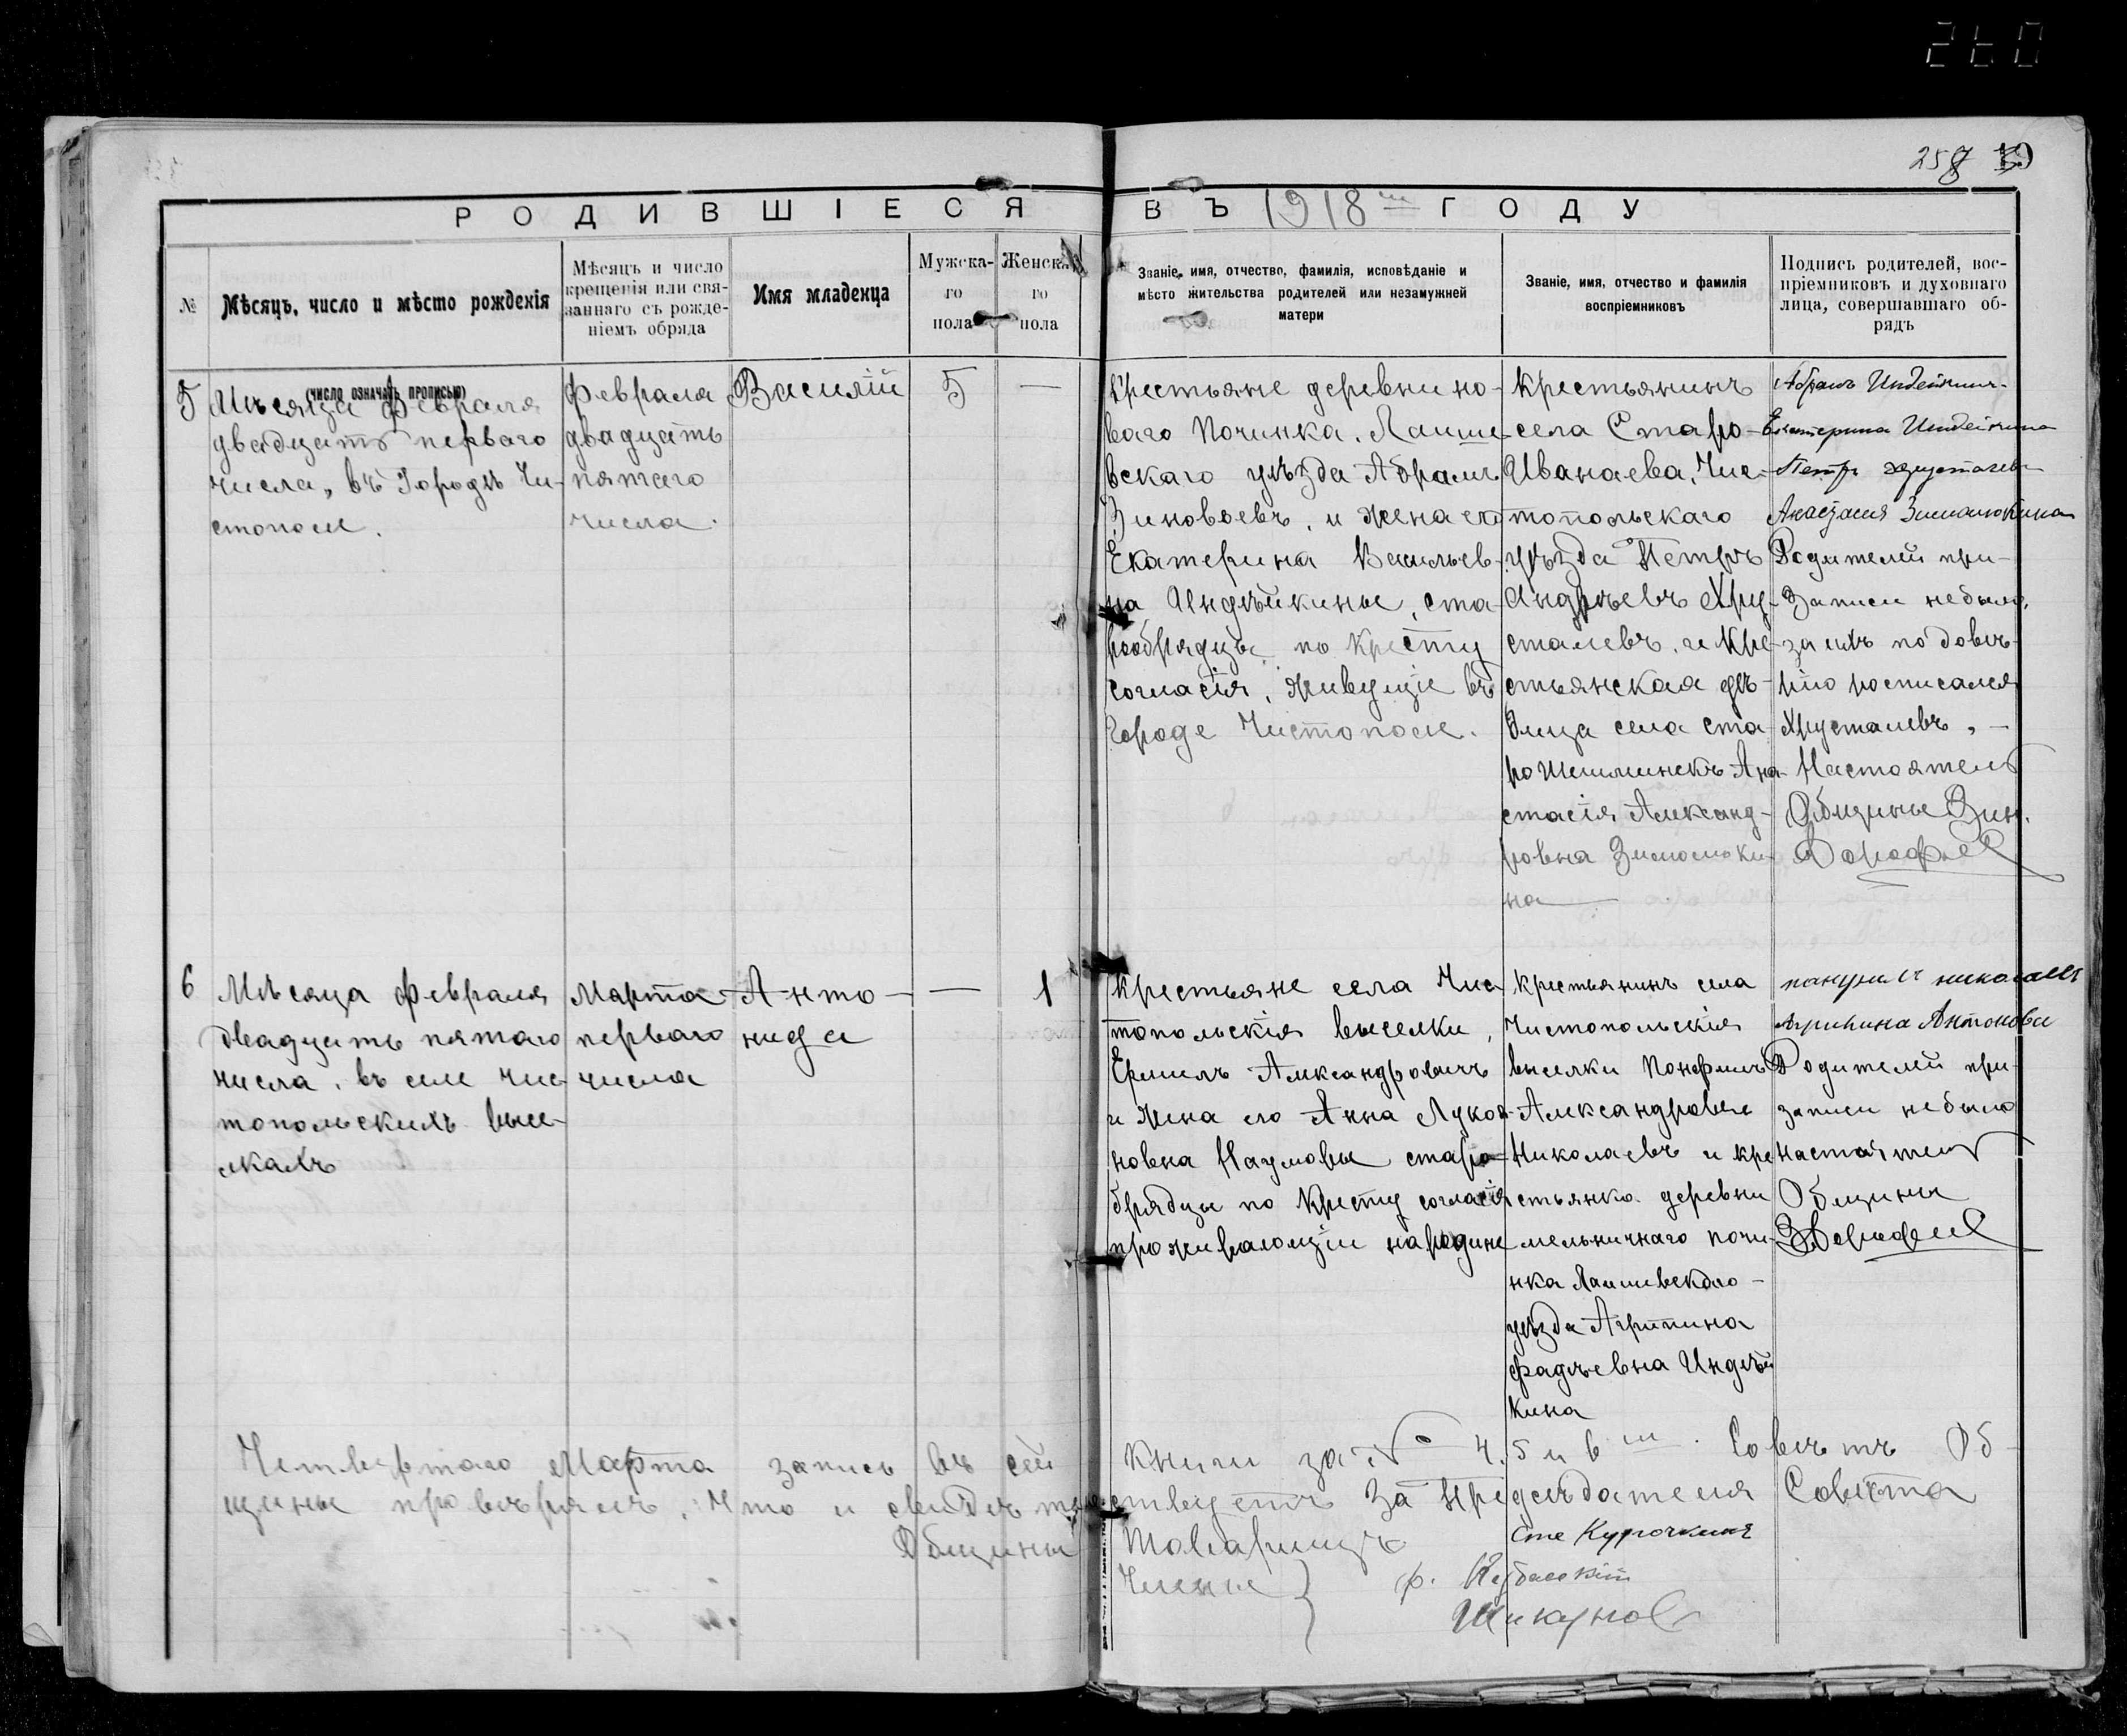 260
258 19
РОДИВШІЕСЯ ВЪ 1918 ГОДУ
№
Мѣсяцъ, число и мѣсто рожденія
(число означать прописью)
Мѣсяцъ и число
крещенія или свя-
заннаго съ рожде-
ніемъ обряда
Имя младенца
Мужска-
го
пола
Женска
го
пола
Званіе, имя, отчество, фамилія, исповѣданіе и
мѣсто жительства родителей или незамужней
матери
Званіе, имя, отчество и фамилія
воспріемниковъ
Подпись родителей, вос-
пріемниковъ и духовнаго
лица, совершавшаго об-
рядъ
5
Мѣсяца февраля
двадцать перваго
числа, въ Городѣ Чи-
стополе.
февраля
двадцать
пятаго
числа.
Василій
5
—
Крестьяне деревни но-
ваго Починка, Лаише-
вскаго уѣзда Абрамъ
Зиновьевъ, и жена его
Екатерина Васильев-
на Индѣйкины, ста-
рообрядцы по Кресту
согласія, живущіе въ
Городе Чистополе.
Крестьянинъ
села Старо-
Иванаева, Чис-
топольскаго
уѣзда Петръ
Андреевъ Хру-
сталевъ, и Кре-
стьянская дѣ-
вица села Ста-
ро Шешминскъ Ана-
стасія Александ-
ровна Зимолоки-
на —
Абрамъ Индейкин-
Екатерина Индейкина
Петръ хрусталевъ
Анастасия
Родителей при-
Записи небыло,
за ихъ по довѣ-
рію росписался
Хрусталевъ, —
Настоятель
Общины Зин.
Дорофеев
6
Мѣсяца февраля
двадцать пятаго
числа, въ селе Чис-
топольскихъ высе-
лкахъ
Марта
перваго
числа
Анто-
нида
—
1
Крестьяне села Чис
топольскія выселки,
Ермилъ Александровичъ
и жена его Анна Лукоя-
новна Наумовы старо-
брядцы по Кресту согласія
проживающіи народине
Крестьянинъ села
Чистопольскія
выселки Понфилъ
Александровъ
Николаевъ и кре
стьянка деревни
мельничнаго почи-
нка Лаишевскаго –
уѣзда Агрипина
Фадѣевна Индѣй
кина
николаевъ
Агрипина Антонова
Родителей при-
записи небыло
настоятель
Общины
З Дорофеев
Четвертаго Марта запись въ сей книги за № 4, 5 и 6 ш. Совѣтъ Об-
щины провѣрялъ, Что и свидѣтельствуетъ За Предсѣдателя Совѣта
Общины Товарищъ Сте Курочкинъ
Члены } ф.
Шикунов